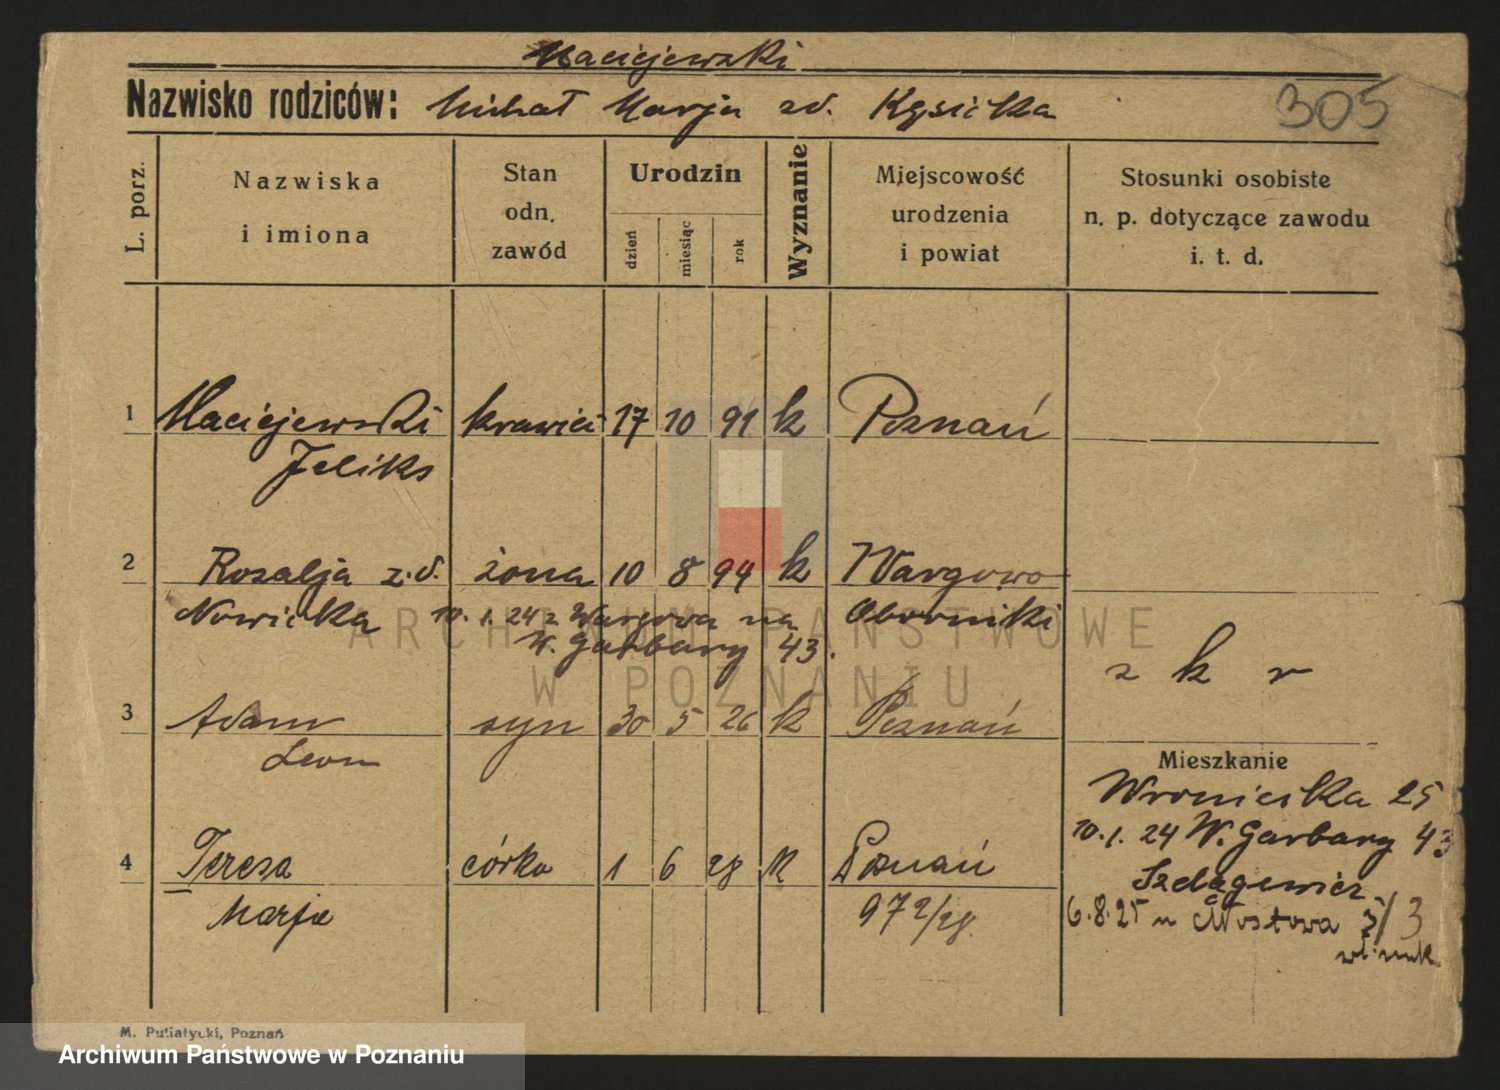 Maciejewski
Nazwisko rodziców: Michał Marja zd. Kęsicka
305
L. porz.
Nazwiska
i imiona
Stan
odn.
zawód
Urodzin
dzień
miesiąc
rok
Wyznanie
Miejscowość
urodzenia
i powiat
Stosunki osobiste
n. p. dotyczące zawodu
i. t. d.
1 Maciejewski krawiec 17 10 91 k Poznań
Feliks
2 Rozalja z.d. żona 10 8 94 k Wargowo
Nowicka 10. 1. 24 z Wargowa na Oborniki
W. Garbary 43.
z k r
3 Adam syn 30 5 26 k Poznań
Leon
Mieszkanie
Wroniecka 25
10. 1. 24 W. Garbary 43
4 Teresa córka 1 6 28 k Poznań
Szelągewicz
Marja 972/28.
6. 8. 25 u Mostowa /3
M. Putiatycki, Poznań
ARCHIWUM PAŃSTWOWE
W POZNANIU
Archiwum Państwowe w Poznaniu